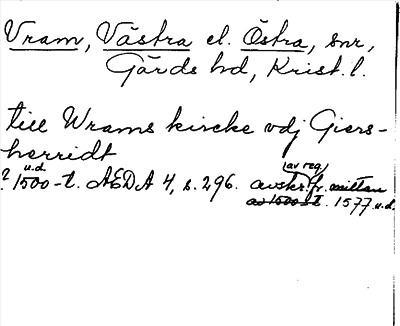 Vram, Västra el. Östra, snr,
Gärds hd, Krist. l.
till Wrams kircke vdj Giers-
herridt
? 1500-t. u.d. AEDA 4, s. 296. avskr. (av reg) fr. mitten
av 1500-t. 1577 u.d.